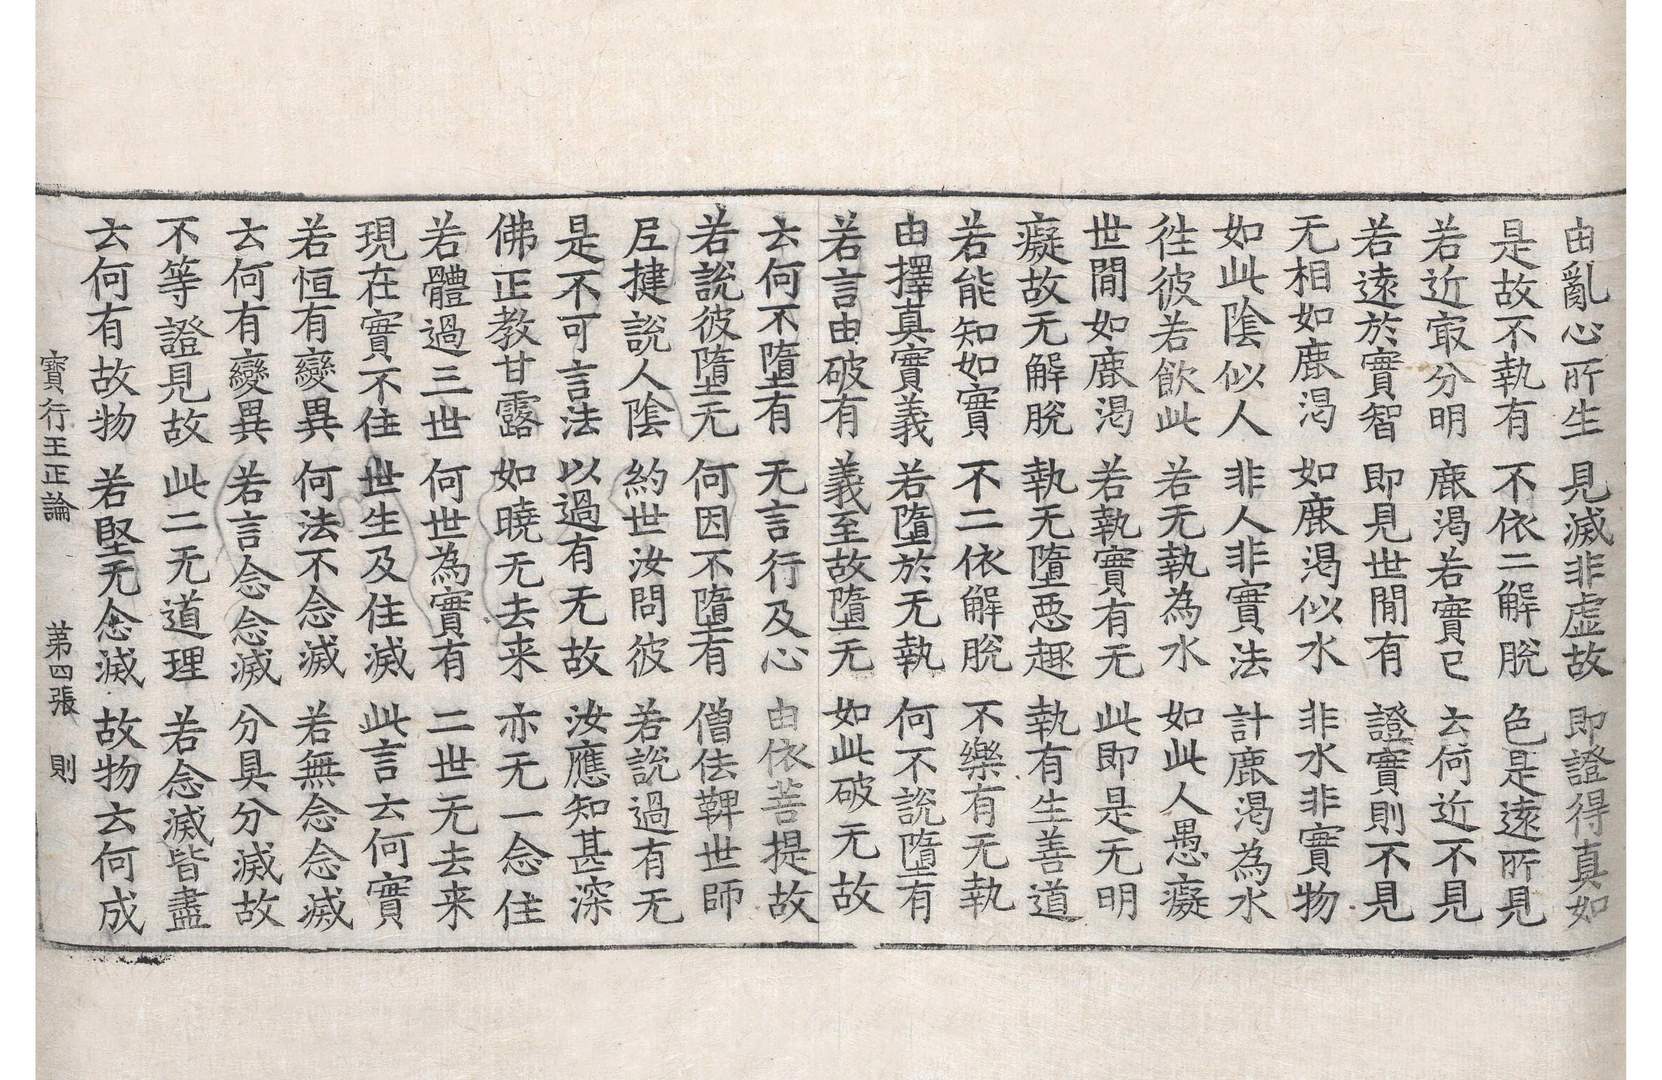 由亂心所生 見滅非虛故 即證得真如
是故不執有 不依二解脫 色是遠所見
若近㝡分明 鹿渴若實已 去何近不見
若遠於實智 即見世閒有 證實則不見
无相如鹿渴 如鹿渴似水 非水非實物
如此陰似人 非人非實法 計鹿渴為水
徃彼若飲此 若无執為水 如此人愚癡
世閒如鹿渴 若執實有无 此即是无明
癡故无解脫 執无墮惡趣 執有生善道
若能知如實 不二依解脫 不樂有无執
由擇真實義 若墮於无執 何不說墮有
若言由破有 義至故墮无 如此破无故
去何不墮有 无言行及心 由依菩提故
若說彼墮无 何因不墮有 僧佉鞞世師
尼揵說人陰 約世汝問彼 若說過有无
是不可言法 以過有无故 汝應知甚深
佛正教甘露 如曉无去来 亦无一念住
若體過三世 何世為實有 二世无去来
現在實不住 世生及住滅 此言去何實
若恒有變異 何法不念滅 若無念念滅
去何有變異 若言念念滅 分具分滅故
不等證見故 此二无道理 若念滅皆盡
去何有故物 若堅无念滅 故物去何成
寶行王正論 第四張 則